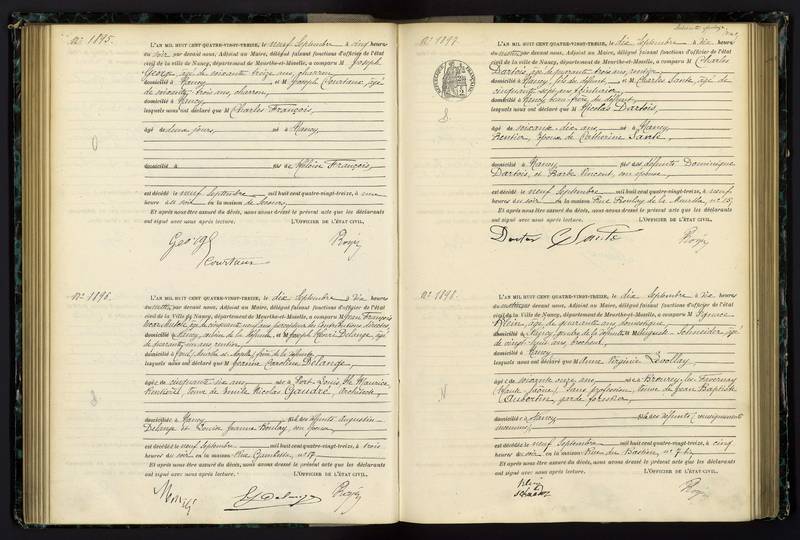 N° 1895.
L'AN MIL HUIT CENT QUATRE-VINGT-TREIZE, le neuf Septembre à cinq heures
du soir par devant nous, Adjoint au Maire, délégué faisant fonctions d'officier de l'état
civil de la Ville de Nancy, département de Meurthe-et-Moselle, a comparu M Joseph
George, âgé de soixante treize ans, charron,
domicilié à Nancy et M Joseph Courtaux, âgé
de soixante trois ans, charron,
domicilié à Nancy,
lesquels nous ont déclaré que M Charles François,
âgé de deux jours, né à Nancy,
domicilié à fils de Héloïse François,
est décédé le neuf Septembre mil huit cent quatre-vingt-treize, à une
heure du soir en la maison de Secours,
Et après nous être assuré du décès, nous avons dressé le présent acte que les déclarants
ont signé avec nous après lecture. L'OFFICIER DE L'ÉTAT CIVIL,
George
Courtaux
N° 1896.
L'AN MIL HUIT CENT QUATRE-VINGT-TREIZE, le dix Septembre à dix heures
du matin par devant nous, Adjoint au Maire, délégué faisant fonctions d'officier de l'état
civil de la Ville de Nancy, département de Meurthe-et-Moselle, a comparu M Jean François
âgé de cinquante neuf ans, percepteur des Contributions directes,
domicilié à Nancy, de la défunte et M Joseph Henri Delange, âgé
de quarante ans, rentier,
domicilié à Toul (Meurthe et Moselle) frère de la défunte,
lesquels nous ont déclaré que M Jeanne Caroline Delange,
âgée de cinquante six ans, née à Port-Louis, Ile Maurice,
Rentière, Nicolas Gaudré, architecte,
domiciliée à Nancy, fille des défunts Augustin
Delange et Louise Jeanne Boulay, son épouse,
est décédée le neuf Septembre mil huit cent quatre-vingt-treize, à trois
heures du soir en la maison Rue Gambetta, n° 17.
Et après nous être assuré du décès, nous avons dressé le présent acte que les déclarants
ont signé avec nous après lecture. L'OFFICIER DE L'ÉTAT CIVIL,
Delange
N° 1897.
L'AN MIL HUIT CENT QUATRE-VINGT-TREIZE, le dix Septembre à dix heures
du matin par devant nous, Adjoint au Maire, délégué faisant fonctions d'officier de l'état
civil de la Ville de Nancy, département de Meurthe-et-Moselle, a comparu M Charles
Dartois, âgé de quarante trois ans,
domicilié à Nancy, fils du défunt, et M Charles Sante, âgé de
cinquante sept ans,
domicilié à Nancy, beau-frère du défunt,
lesquels nous ont déclaré que M Nicolas Dartois,
âgé de soixante-dix ans, né à Nancy,
Rentier, époux de Catherine Sante,
domicilié à Nancy, fils des défunts Dominique
Dartois, et Barbe Vincent, son épouse,
est décédé le neuf Septembre mil huit cent quatre-vingt-treize, à neuf
heures du soir en la maison Rue Boulay de la Meurthe, n° 15,
Et après nous être assuré du décès, nous avons dressé le présent acte que les déclarants
ont signé avec nous après lecture. L'OFFICIER DE L'ÉTAT CIVIL,
N° 1898.
L'AN MIL HUIT CENT QUATRE-VINGT-TREIZE, le dix Septembre à dix heures
du matin par devant nous, Adjoint au Maire, délégué faisant fonctions d'officier de l'état
civil de la Ville de Nancy, département de Meurthe-et-Moselle, a comparu M Ignace
Klein, âgé de quarante ans, domestique,
domicilié à Nancy, gendre de la défunte et M Auguste Schneider, âgé
de vingt huit ans, brocheur,
domicilié à Nancy,
lesquels nous ont déclaré que M Anne Virginie
âgée de soixante onze ans, née à
(Haute Saône), sans profession, veuve de Jean Baptiste
Aubertin, garde forestier,
domiciliée à Nancy, fille des défunts (renseignements
inconnus),
est décédée le neuf Septembre mil huit cent quatre-vingt-treize, à cinq
heures du soir en la maison Rue du Bastion, n° 7 bis,
Et après nous être assuré du décès, nous avons dressé le présent acte que les déclarants
ont signé avec nous après lecture. L'OFFICIER DE L'ÉTAT CIVIL,
Klein